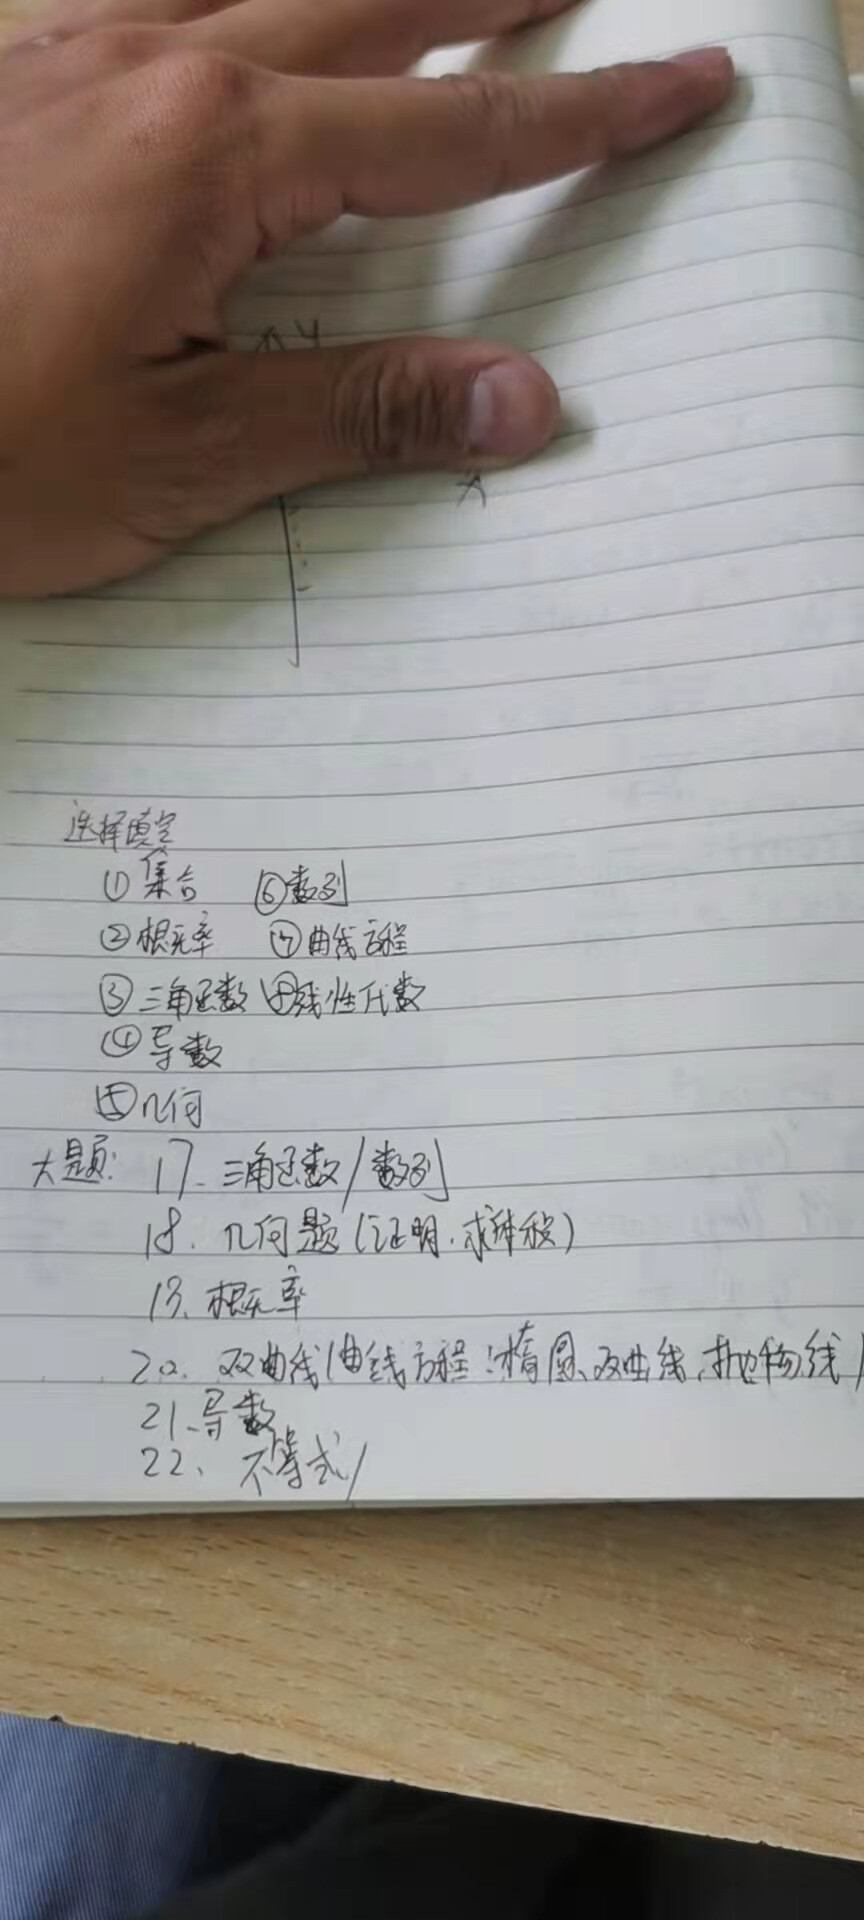 y
x
选择填空
① 集合 ⑥数列
② 概率 ⑦曲线方程
③ 三角函数 ⑧线性代数
④ 导数
⑤几何
大题: 17. 三角函数/数列
18. 几何题(证明.求体积)
19. 概率
20. 双曲线(曲线方程:椭圆、双曲线、抛物线)
21. 导数
22、不等式/